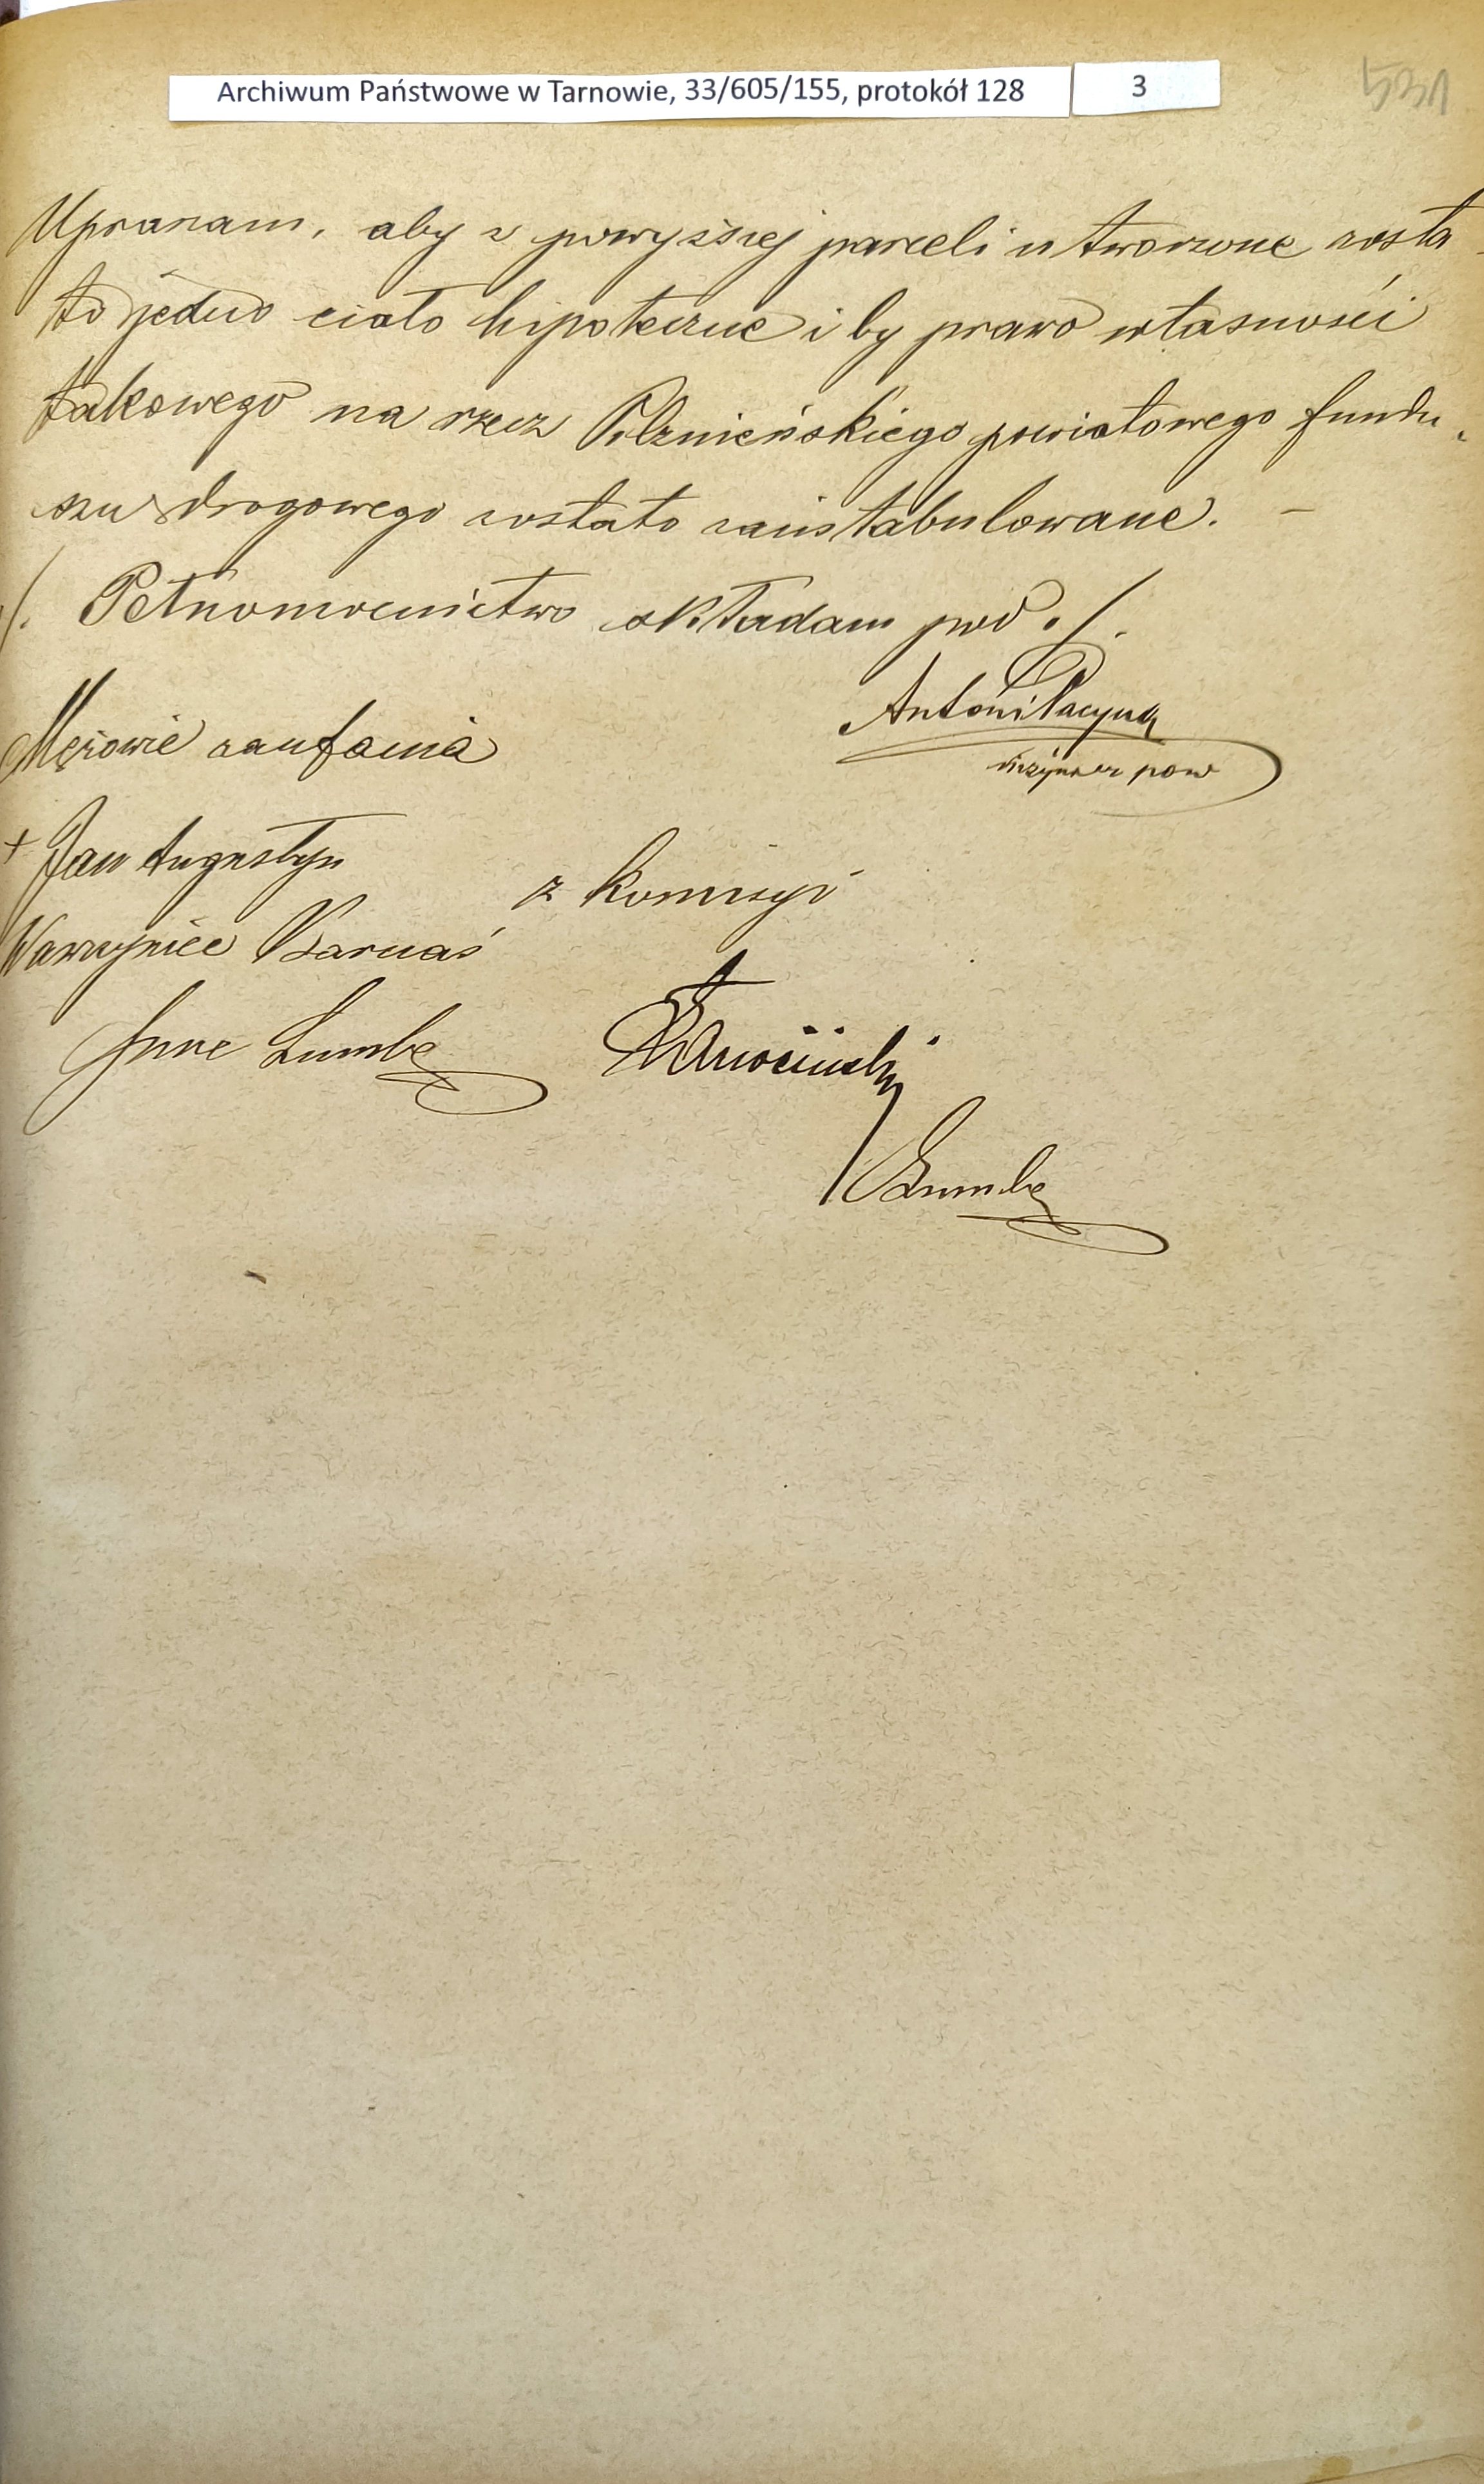 Archiwum Państwowe w Tarnowie, 33/605/155, protokół 128 3
531
Upraszam, aby z powyższej parceli utworzone zosta-
ło jedno ciało hipoteczne i by prawo własności
takowego na rzecz Pilznieńskiego powiatowego fundu-
szu drogowego zostało zaintabulowane. –
./. Pełnomocnictwo składam pod ./.
Antoni Pacyna
inżynier pow
Mężowie zaufania
+ Jan Augustyn
z komisyi
Wawrzyniec Karnaś